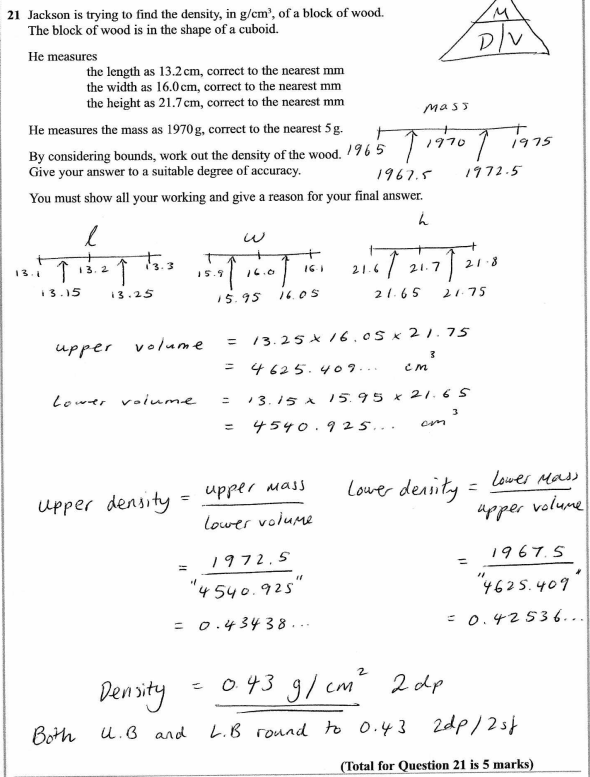 21 Jackson is trying to find the density, in g/cm³, of a block of wood.
The block of wood is in the shape of a cuboid.
M
D/V
He measures
the length as 13.2 cm, correct to the nearest mm
the width as 16.0 cm, correct to the nearest mm
the height as 21.7 cm, correct to the nearest mm
Mass
He measures the mass as 1970 g, correct to the nearest 5 g.
1965 1970 1975
1967.5 1972.5
By considering bounds, work out the density of the wood.
Give your answer to a suitable degree of accuracy.
You must show all your working and give a reason for your final answer.
l w h
13.1 13.2 13.3 15.9 16.0 16.1 21.6 21.7 21.8
13.15 13.25 15.95 16.05 21.65 21.75
upper volume = 13.25 x 16.05 x 21.75
= 4625.409... cm³
Lower volume = 13.15 x 15.95 x 21.65
= 4540.925... cm³
upper density = upper mass / lower volume
= 1972.5 / "4540.925"
= 0.43438...
Lower density = Lower Mass / upper volume
= 1967.5 / "4625.409"
= 0.42536...
Density = 0.43 g/cm² 2dp
Both U.B and L.B round to 0.43 2dp/2sf
(Total for Question 21 is 5 marks)